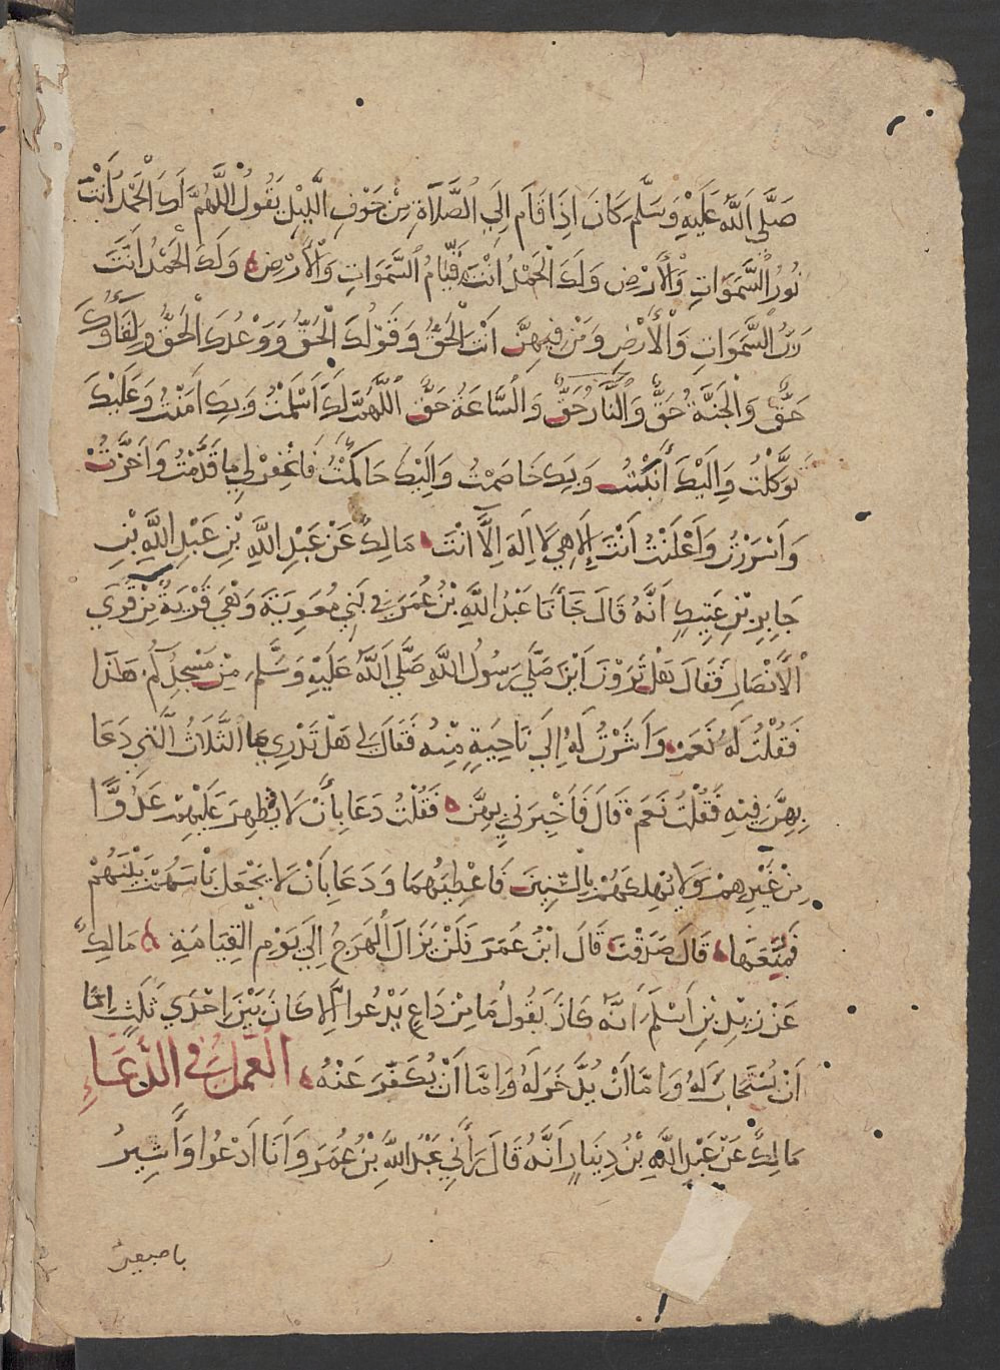 صَلَّى اللَّهُ عَلَيْهِ وَسَلَّمَ كَانَ اِذَا قَامَ اِلَي الصَّلَاةِ مِنْ جَوْفِ اللَّيْلِ يَقُولُ اللَّهُمَّ لَكَ الْحَمْدُ اَنْتَ
نُورُ السَّمَوَاتِ وَالْأَرْضِ وَلَكَ الْحَمْدُ اَنْتَ قَيَّامُ السَّمَوَاتِ وَالْأَرْضِ وَلَكَ الْحَمْدُ اَنْتَ
رَبُّ السَّمَوَاتِ وَالْأَرْضِ وَمَنْ فِيهِنَّ اَنْتَ الْحَقُّ وَقَوْلُكَ الْحَقُّ وَوَعْدُكَ الْحَقُّ وَلِقَاؤُكَ
حَقٌّ وَالْجَنَّةُ حَقٌّ وَالنَّارُ حَقٌّ وَالسَّاعَةُ حَقٌّ اللَّهُمَّ لَكَ اَسْلَمْتُ وَبِكَ اٰمَنْتُ وَعَلَيْكَ
تَوَكَّلْتُ وَاِلَيْكَ أَنَبْتُ وَبِكَ خَاصَمْتُ وَاِلَيْكَ حَاكَمْتُ فَاغْفِرْ لِي مَا قَدَّمْتُ وَاَخَّرْتُ
وَاَسْرَرْتُ وَاَعْلَنْتُ اَنْتَ إِلَاهِي لَا اِلَهَ اِلَّا اَنْتَ مَالِكٌ عَنْ عَبْدِ اللَّهِ بْنِ عَبْدِ اللَّهِ بْنِ
جَابِرِ بْنِ عَتِيكٍ اَنَّهُ قَالَ جَأَنَا عَبْدُ اللَّهِ بْنُ عُمَرَ فِي بَنِي مُعَوِيَةَ وَهْيَ قَرْيَةٌ مِنْ قُرَي
الْأَنْصَارِ فَقَالَ هَلْ تَدْرُونَ اَيْنَ صَلَّي رَسُولُ اللَّهِ صَلَّي اللَّهُ عَلَيْهِ وَسَلَّمَ مِنْ مَسْجِدِكُمْ هَذَا
فَقُلْتُ لَهُ نَعَمْ وَاَشَرْتُ لَهُ اِلَي نَاحِيَةٍ مِنْهُ فَقَالَ لِي هَلْ تَدْرِي مَا الثَّلَاثُ الَّتِي دَعَا
بِهِنَّ فِيْهِ فَقُلْتُ نَعَمْ قَالَ فَاَخْبِرْنِي بِهِنَّ فَقُلْتُ دَعَا بِأَنْ لَا يُظْهِرَ عَلَيْهِمْ عَدُوًّا
مِنْ غَيْرِهِمْ وَلَا يُهْلِكَهُمْ بِالسِّنِينَ فَاُعْطِيَهُمَا وَدَعَا بِاَنْ لَا يَجْعَلَ بَأْسَهُمْ بَيْنَهُمْ
فَمُنِعَهَا قَالَ صَدَقْتَ قَالَ ابْنُ عُمَرَ فَلَنْ يَزَالَ الْهَرْجُ اِلَي يَوْمِ الْقِيَامَةِ مَالِكٌ
عَنْ زَيْدِ بْنِ اَسْلَمَ اَنَّهُ كَانَ يَقُولُ مَا مِنْ دَاعٍ يَدْعُوا اِلَّا كَانَ بَيْنَ اِحْدَي ثَلَثٍ اِمَّا
اَنْ يُسْتَجَابَ لَهُ وَاِمَّا اَنْ يُدَّخَرَ لَهُ وَاِمَّا اَنْ يُكَفَّرَ عَنْهُ الْعَمَلُ فِي الدُّعَاءِ
مَالِكٌ عَنْ عَبْدِ اللَّهِ بْنِ دِينَارٍ اَنَّهُ قَالَ رَأَنِي عَبْدُ اللَّهِ بْنُ عُمَرَ وَاَنَا اَدْعُوا وَأُشِيرُ
باصبعين